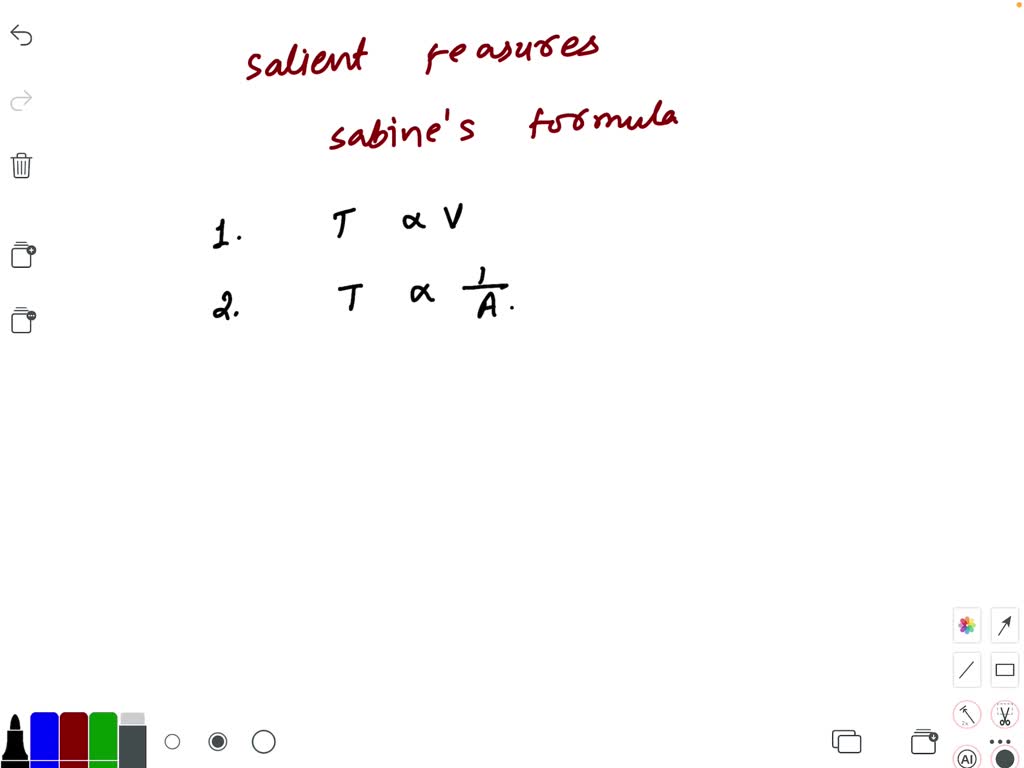 salient feasures
sabine's formula
1. T ∝ V
2. T ∝ 1/A.
AI